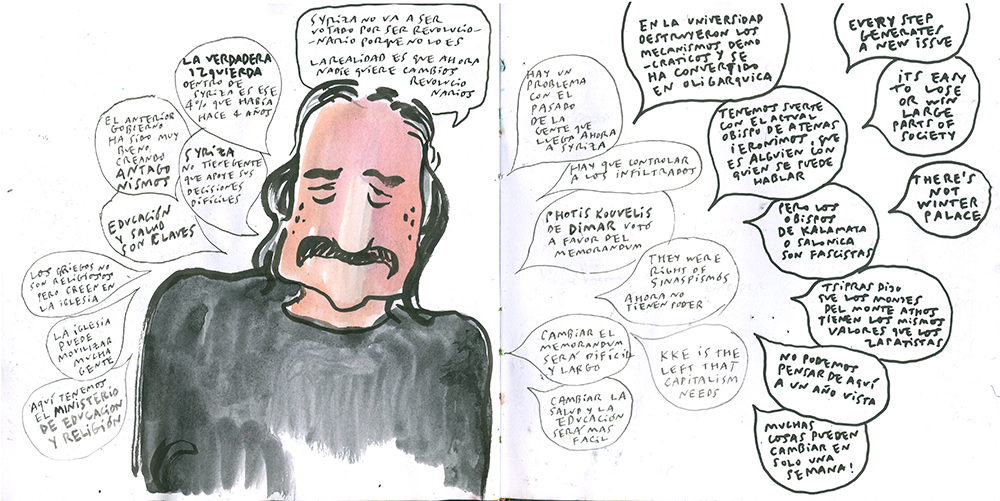 SYRIZA NO VA A SER
VOTADO POR SER REVOLUCIO
-NARIO PORQUE NO LO ES
LA REALIDAD ES QUE AHORA
NADIE QUIERE CAMBIOS
REVOLUCIO
NARIOS
LA VERDADERA
IZQUIERDA
DENTRO DE
SYRIZA ES ESE
4% QUE HABÍA
HACE 4 AÑOS
EL ANTERIOR
GOBIERNO
HA SIDO MUY
BUENO
CREANDO
ANTAGO
NISMOS
SYRIZA
NO TIENE GENTE
QUE APOYE SUS
DECISIONES
DIFÍCILES
EDUCACIÓN
Y SALUD
SON CLAVES
LOS GRIEGOS NO
SON RELIGIOSOS
PERO CREEN EN
LA IGLESIA
LA IGLESIA
PUEDE
MOVILIZAR
MUCHA
GENTE
AQUÍ TENEMOS
EL MINISTERIO
DE EDUCACIÓN
Y RELIGIÓN
HAY UN
PROBLEMA
CON EL
PASADO
DE LA
GENTE QUE
LLEGA AHORA
A SYRIZA
HAY QUE CONTROLAR
A LOS INFILTRADOS
PHOTIS KOUVELIS
DE DIMAR VOTÓ
A FAVOR DEL
MEMORANDUM
THEY WERE
RIGHT OF
SINASPISMÓS
AHORA NO
TIENEN PODER
CAMBIAR EL
MEMORANDUM
SERÁ DIFÍCIL
Y LARGO
KKE IS THE
LEFT THAT
CAPITALISM
NEEDS
CAMBIAR LA
SALUD Y LA
EDUCACIÓN
SERÁ MAS
FACIL
EN LA UNIVERSIDAD
DESTRUYERON LOS
MECANISMOS DEMO
-CRATICOS Y SE
HA CONVERTIDO
EN OLIGARQUICA
TENEMOS SUERTE
CON EL ACTUAL
OBISPO DE ATENAS
IERONIMOS, QUE
ES ALGUIEN CON
QUIEN SE PUEDE
HABLAR
PERO LOS
OBISPOS
DE KALAMATA
O SALONICA
SON FASCISTAS
TSIPRAS DIJO
QUE LOS MONJES
DEL MONTE ATHOS
TIENEN LOS MISMOS
VALORES QUE LOS
ZAPATISTAS
NO PODEMOS
PENSAR DE AQUÍ
A UN AÑO VISTA
MUCHAS
COSAS PUEDEN
CAMBIAR EN
SOLO UNA
SEMANA!
EVERY STEP
GENERATES
A NEW ISSUE
ITS EASY
TO LOSE
OR WIN
LARGE
PARTS OF
SOCIETY
THERE'S
NOT
WINTER
PALACE